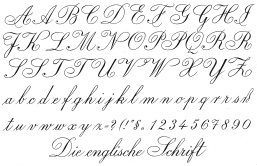 A B C D E F G H I
J K L M N O P P Q R R
S S T T U V W X Y Z
a b c d e f g h i j k l m n o p q r s ß
t u v w x y z = ? ( ! " § . 1 2 3 4 5 6 7 8 9 0
Die englische Schrift